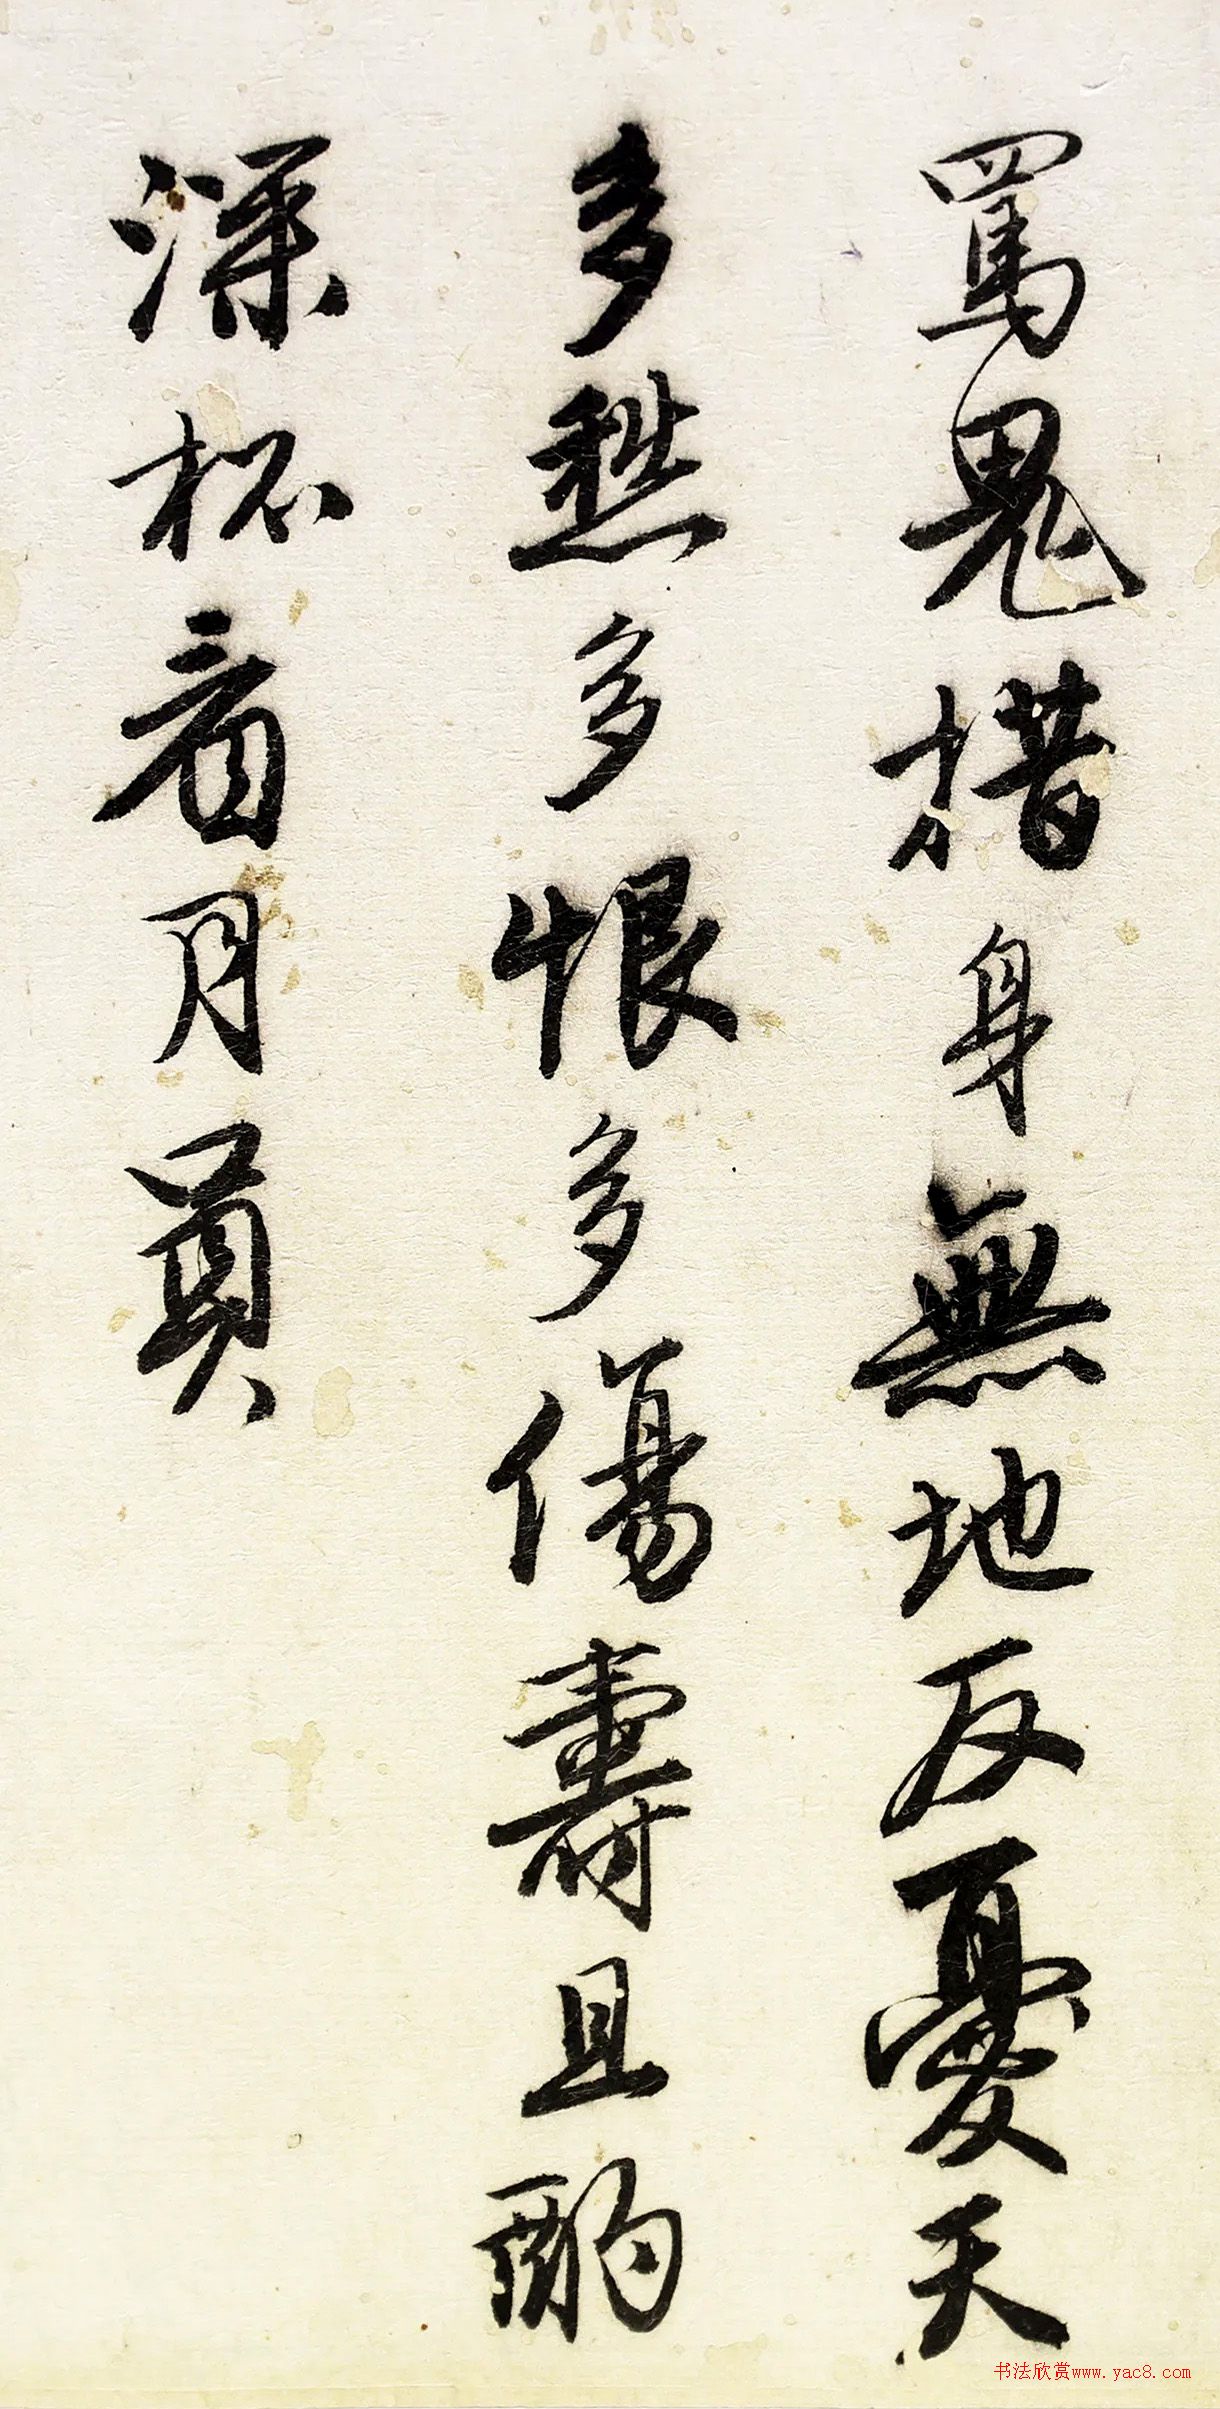 罵鬼措身無地反憂天
多愁多恨多傷壽且酌
深杯看月員
书法欣赏www.yac8.com